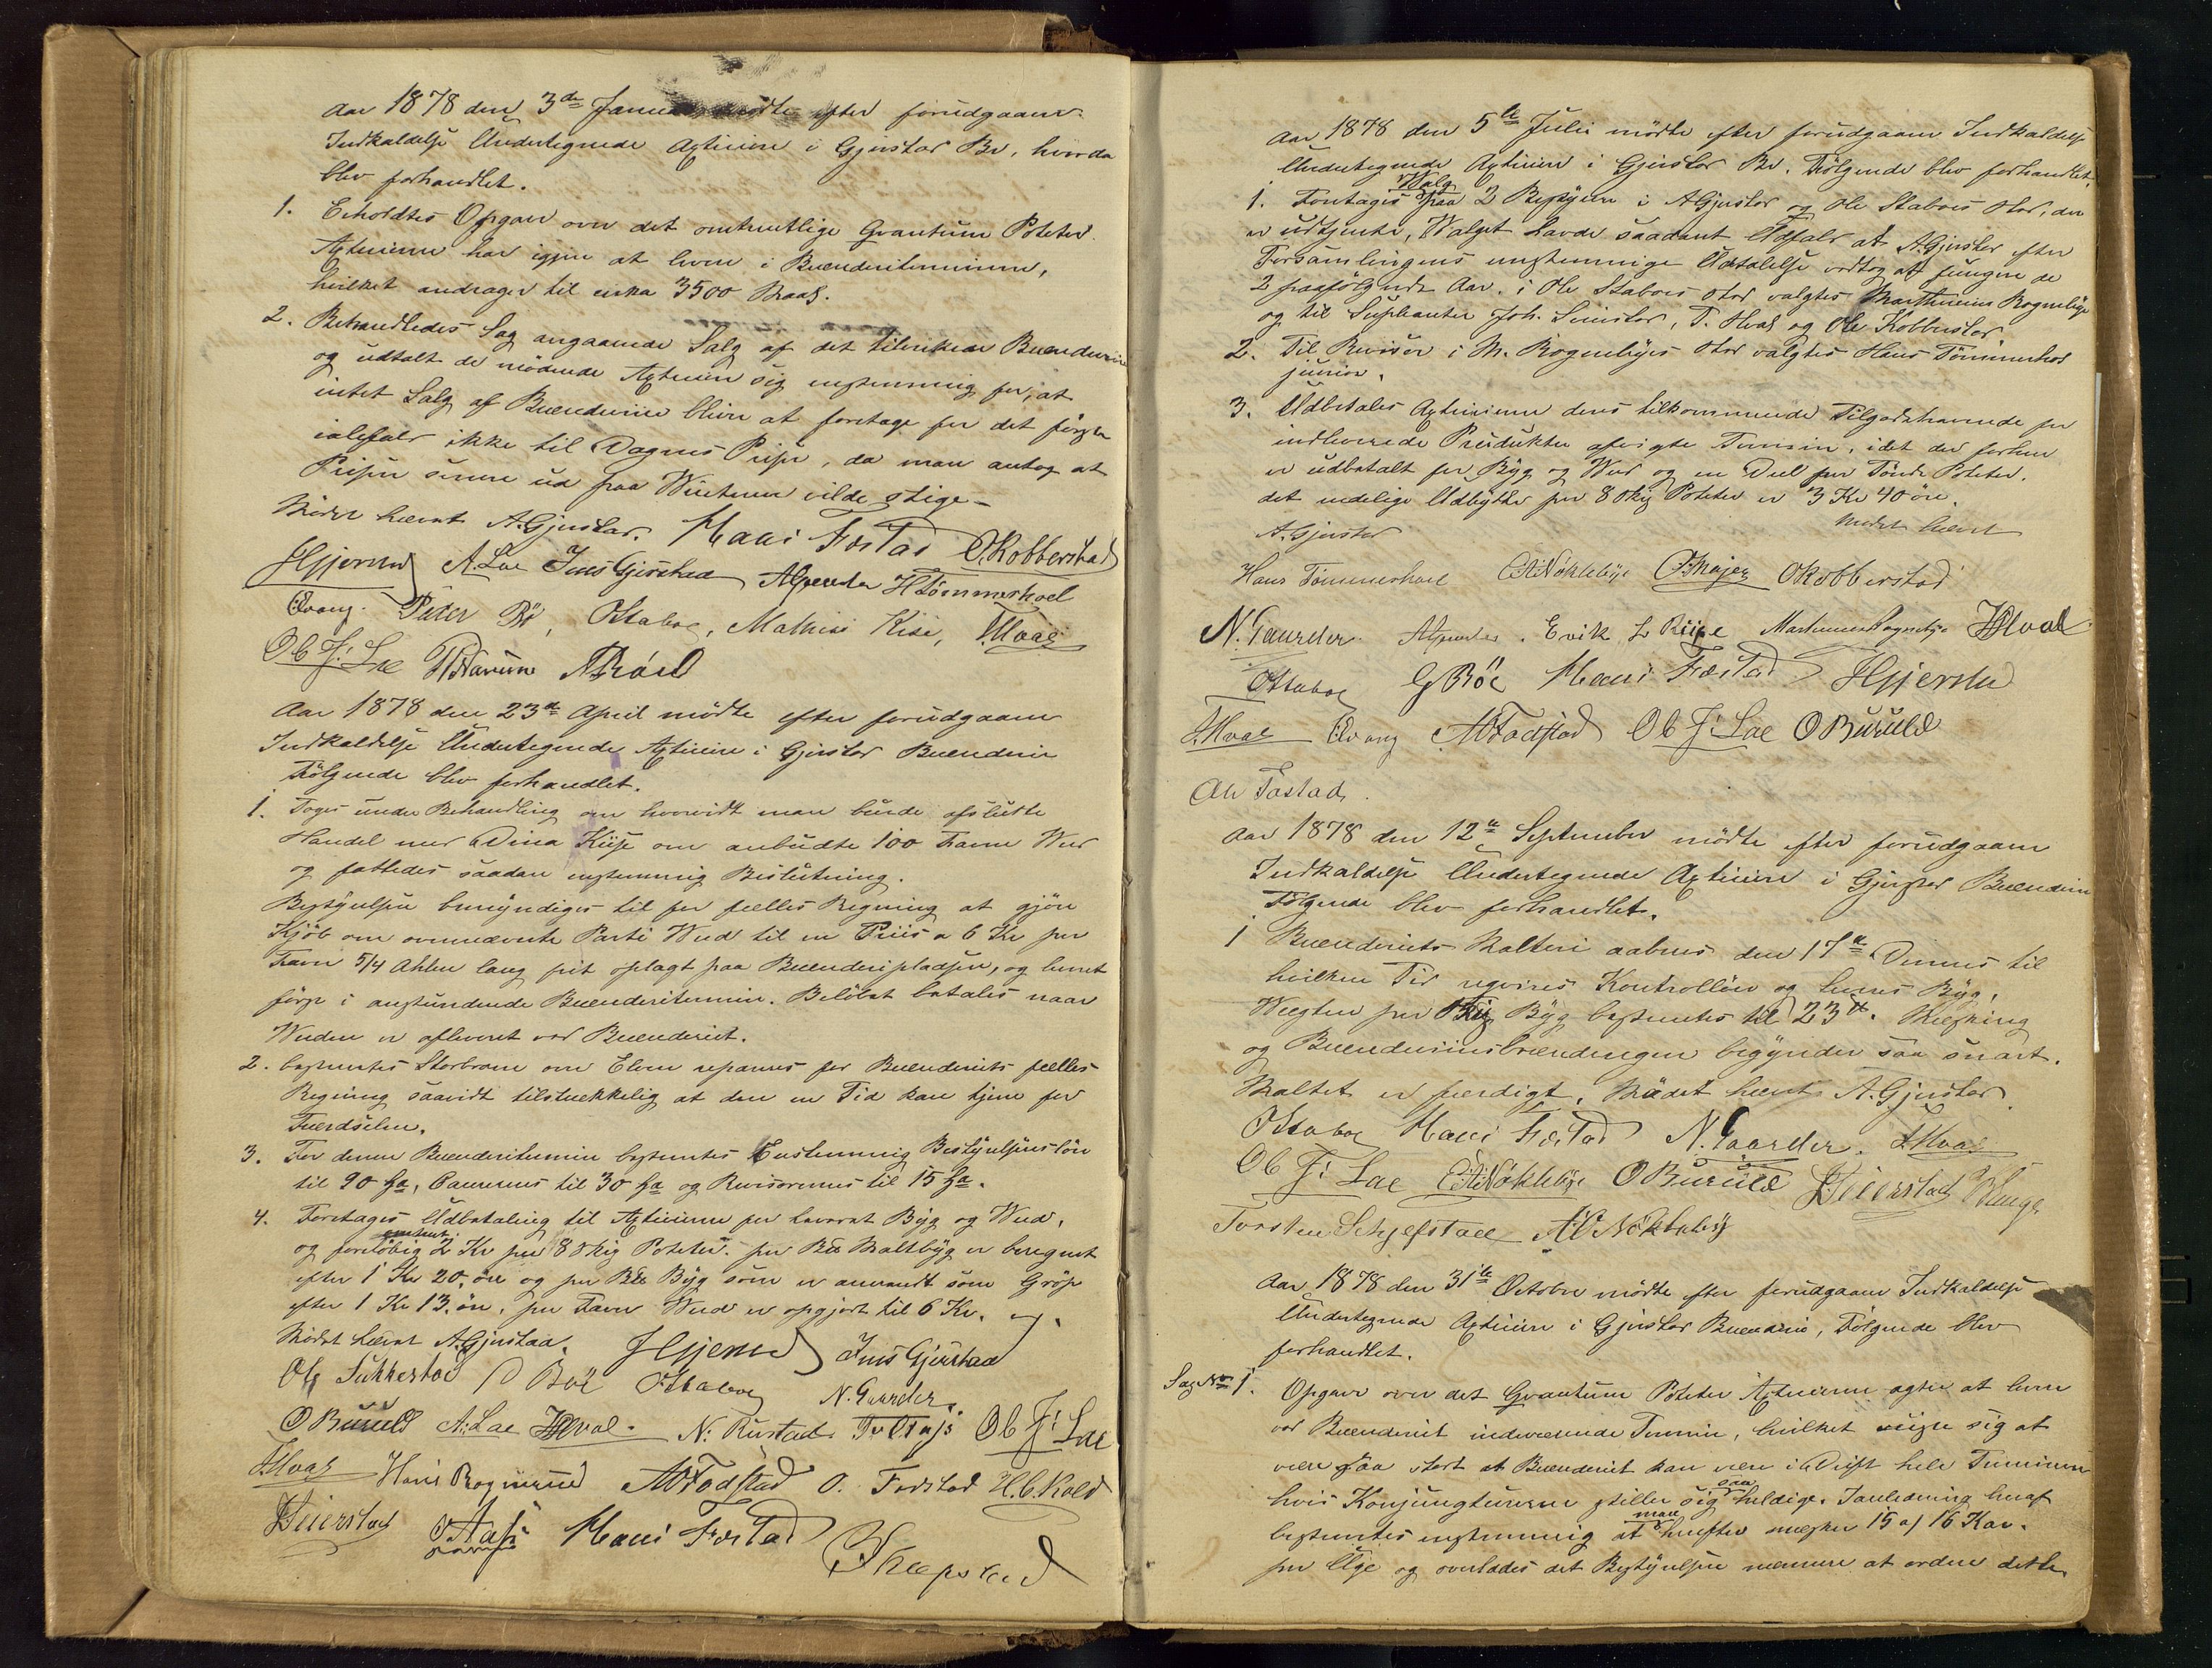 Aar 1878 den 3de Januar mödte efter forudgaaen
Indkaldelse Undertegnede Agtiiere i Gjerstad Br, hvorda
blev forhandlet.
1. Erholdtes Opgave over det omtrentlige Qvantum Poteter
Agtiierne har igjen at levere i Brænderiterminen,
hvilket andrager til cirka 3500 Maal.
2. Behandledes Sag angaaende Salg af det tilvirkede Brændeviin
og udtalt de mödende Agtiiere sig enstemmig for, at
intet Salg af Brændeviin bliver at foretage for det förste
ialfald ikke til Dagens Priser, da man antog at
Prisen senere ud paa Winteren vilde stige –
Mödet hævet A. Gjerstad. Hans Fostad O Kobberstad
H Gjerstad A. Lae Jens Gjerstad HTömmerhoel
Evang. Peder Bö, OStaboe, Mathias Kise, THval
Ob J: Lae
Aar 1878 den 23de April mödte efter forudgaaen
Indkaldelse Undertegnede Agtiiere i Gjerstad Brænderie
Fölgende blev forhandlet.
1. Toges under Behandling om hvorvidt man burde afslutte
Handel med Dina Kiise om anbudte 100 Favne Wed
og fattedes saadan enstemmig Beslutning.
Bestyrelsen bemyndiges til for fælles Regning at gjöre
Kjöb om ovennævnte Parti Wed til en Priis a 6 Kr per
Favn 5/4 Ahlen lang frit oplagt paa Brænderipladsen, og leveret
först i anstundende Brænderitermin. Belöbet betales naar
Weden er afleveret ved Brænderiet.
2. bestemtes Storbroen over Elven repareres for Brænderiets fælles
Regning saavidt tilstrækkelig at den en Tid kan tjene for
Færdselen.
3. For denne Brænderitermin bestemtes Enstemmig Bestyrelsenslön
til 90 ha, Casererens til 30 ha og Revisorernes til 15 ha.
4. Foretages Udbetaling til Agtiierne for leveret Byg og Wed,
og forelöbig omtrent 2 Kr per 8 Skjg Poteter. per Bdr Maltbyg er beregnet
efter 1 Kr 20. öre og per Bdr Byg som er anvendt som Gröp
efter 1 Kr 13. öre, per Favn Wed er opgjort til 6 Kr.
Mödet hævet A. Gjerstad. H Gjerstad Jens Gjerstad
Ole Sukkestad P Böe OStaboe N. Gaarder.
O Buruld A: Lae HHval. N: Rustad Ob J: Lae
THval Hans Rognerud A O Fodstad O. Fodstad H. C. Kold
Hans Fostad
Aar 1878 den 5te Julii mödte efter forudgaaen Indkaldelse
Undertegnede Agtiiere i Gjerstad Br. Fölgende blev forhandlet.
1. Foretages Walg paa 2 Bestyrere i A Gjerstad og Ole Staboes Sted, der
er udtjente, Walget havde saadant Udfald at A. Gjerstad efter
Forsamlingens enstemmige Udtalelse vedtog at fungere de
2 paafölgende Aar. i Ole Staboes Sted valgtes Marthinius Rognebye
og til Suplianter Joh. Simistad, T. Hval og Ole Kobberstad.
2. Til Revisor i M. Rognebyes Sted valgtes Hans Tömmerhol
junior.
3. Udbetales Agtiierne deres tilkommende Tilgodehavende for
indleverede Produkter afvigte Termin, idet der forhen
er udbetalt for Byg og Wed og en Deel per Tönde Poteter.
det endelige Udbytte per 8 Skjg Poteter er 3 Kr 40 öre.
Mödet hævet
A. Gjerstad
Hans Tömmerhoel O Majer OKobberstad
N. Gaarder. Erik L Riise Martinius Rognebye HHval
OStaboe G Böe Hans Fostad H Gjerstad
THval Evang A O Fodstad Ob J: Lae O Buruld
Ole Fostad.
Aar 1878 den 12te September mödte efter forudgaaen
Indkaldelse Undertegnede Agtiiere i Gjerstad Brænderie
Fölgende blev forhandlet.
1 Brænderiets Malteri aabnes den 17de Dennes til
hvilken Tid reqvireres Kontrollör og leveres Byg.
Wægten per Bdr Byg bestemtes til 23 ℔. Mæskning
og Brændeviinsbrændingen begynder saa snart
Maltet er færdigt. Mödet hævet A. Gjerstad
OStaboe Hans Fostad N. Gaarder. THval
Ob J: Lae O Buruld
Torsten Schjefstad
Aar 1878 den 31te October mödte efter forudgaaen Indkaldelse
Undertegnede Agtiiere i Gjerstad Brænderie, Fölgende blev
forhandlet.
Sag No 1. Opgave over det Qvantum Poteter Agtiierne agter at levere
ved Brænderiet indeværende Termin, hvilket viiste sig at
være saa stort at Brænderiet kan være i Drift hele Terminen
hvis Konjungturerne stiller sig saa heldige. I anledning heraf
bestemtes enstemmig at man herefter mæsker 15 a 16 Kar.
per Uge og overlodes det Bestyrelsen nærmere at ordne dette.